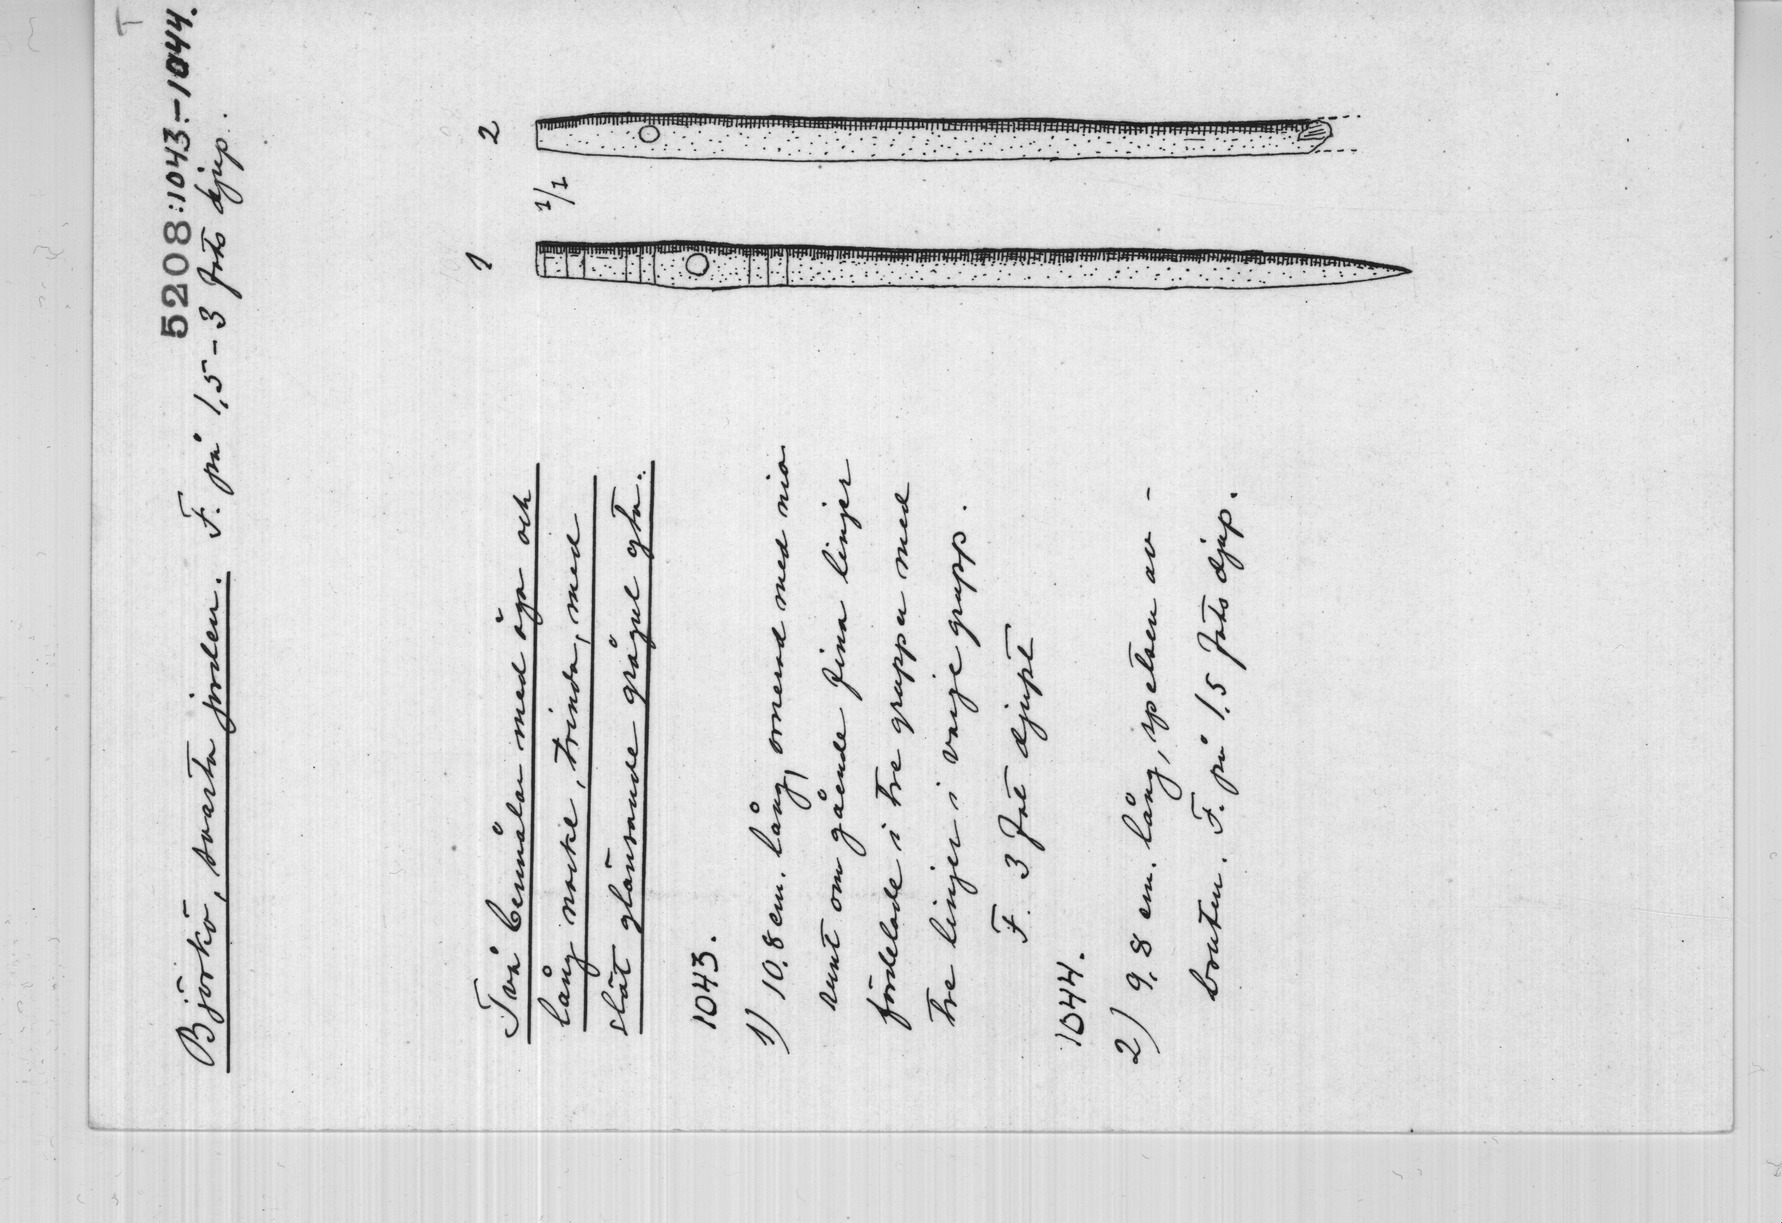 5208:1043-1044.
Björkö, svarta jorden. F. på 1,5-3 fots djup.
Två bennålar med öga och
lång nacke, trinda, med
slät glänsande grågul yta.
1043.
1) 10,8 cm. lång, ornerad med nio
runt om gående fina linjer
fördelade i tre grupper med
tre linjer i varje grupp.
F. 3 fot djupt
1044.
2) 9,8 cm. lång, spetsen av-
bruten. F. på 1,5 fots djup.
1
1/1
2
T